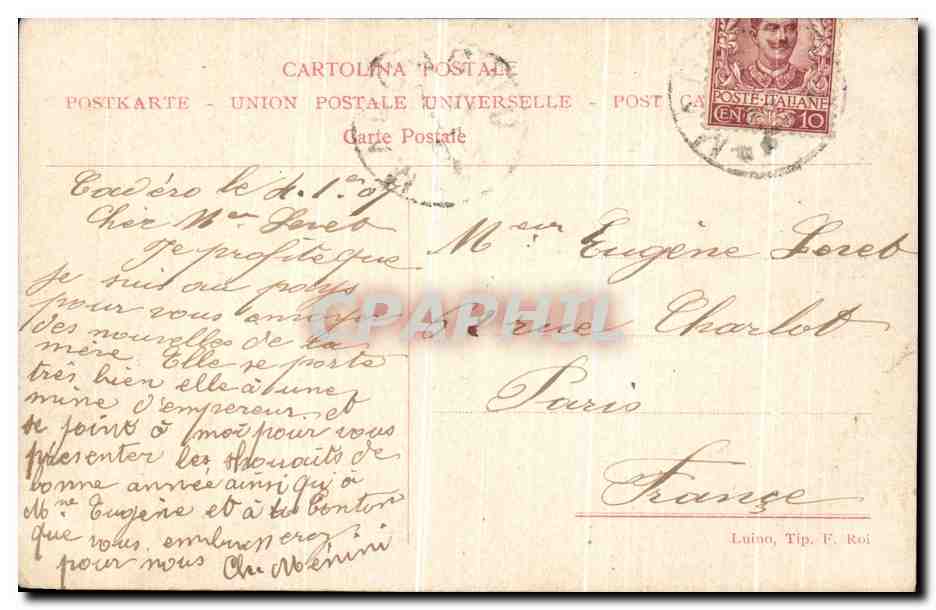 CARTOLINA POSTALE
POSTKARTE - UNION POSTALE UNIVERSELLE - POST CA
Carte Postale
POSTE·ITALIANE
CEN. 10
le 4. 1.er 07
Cher Mr. Loret
Je profite que
je suis au pays
pour vous envoyer
des nouvelles de la
mère. Elle se porte
très bien elle à une
mine d'empereur et
se joint à moi pour vous
présenter les shouaits de
bonne année ainsi qu'à
Mme Eugène et à
que vous embrasserez
pour nous Ch. Ménini
Meur Eugène Loret
rue Charlot
Paris
France
Luino, Tip. F. Roi
CPAPHIL